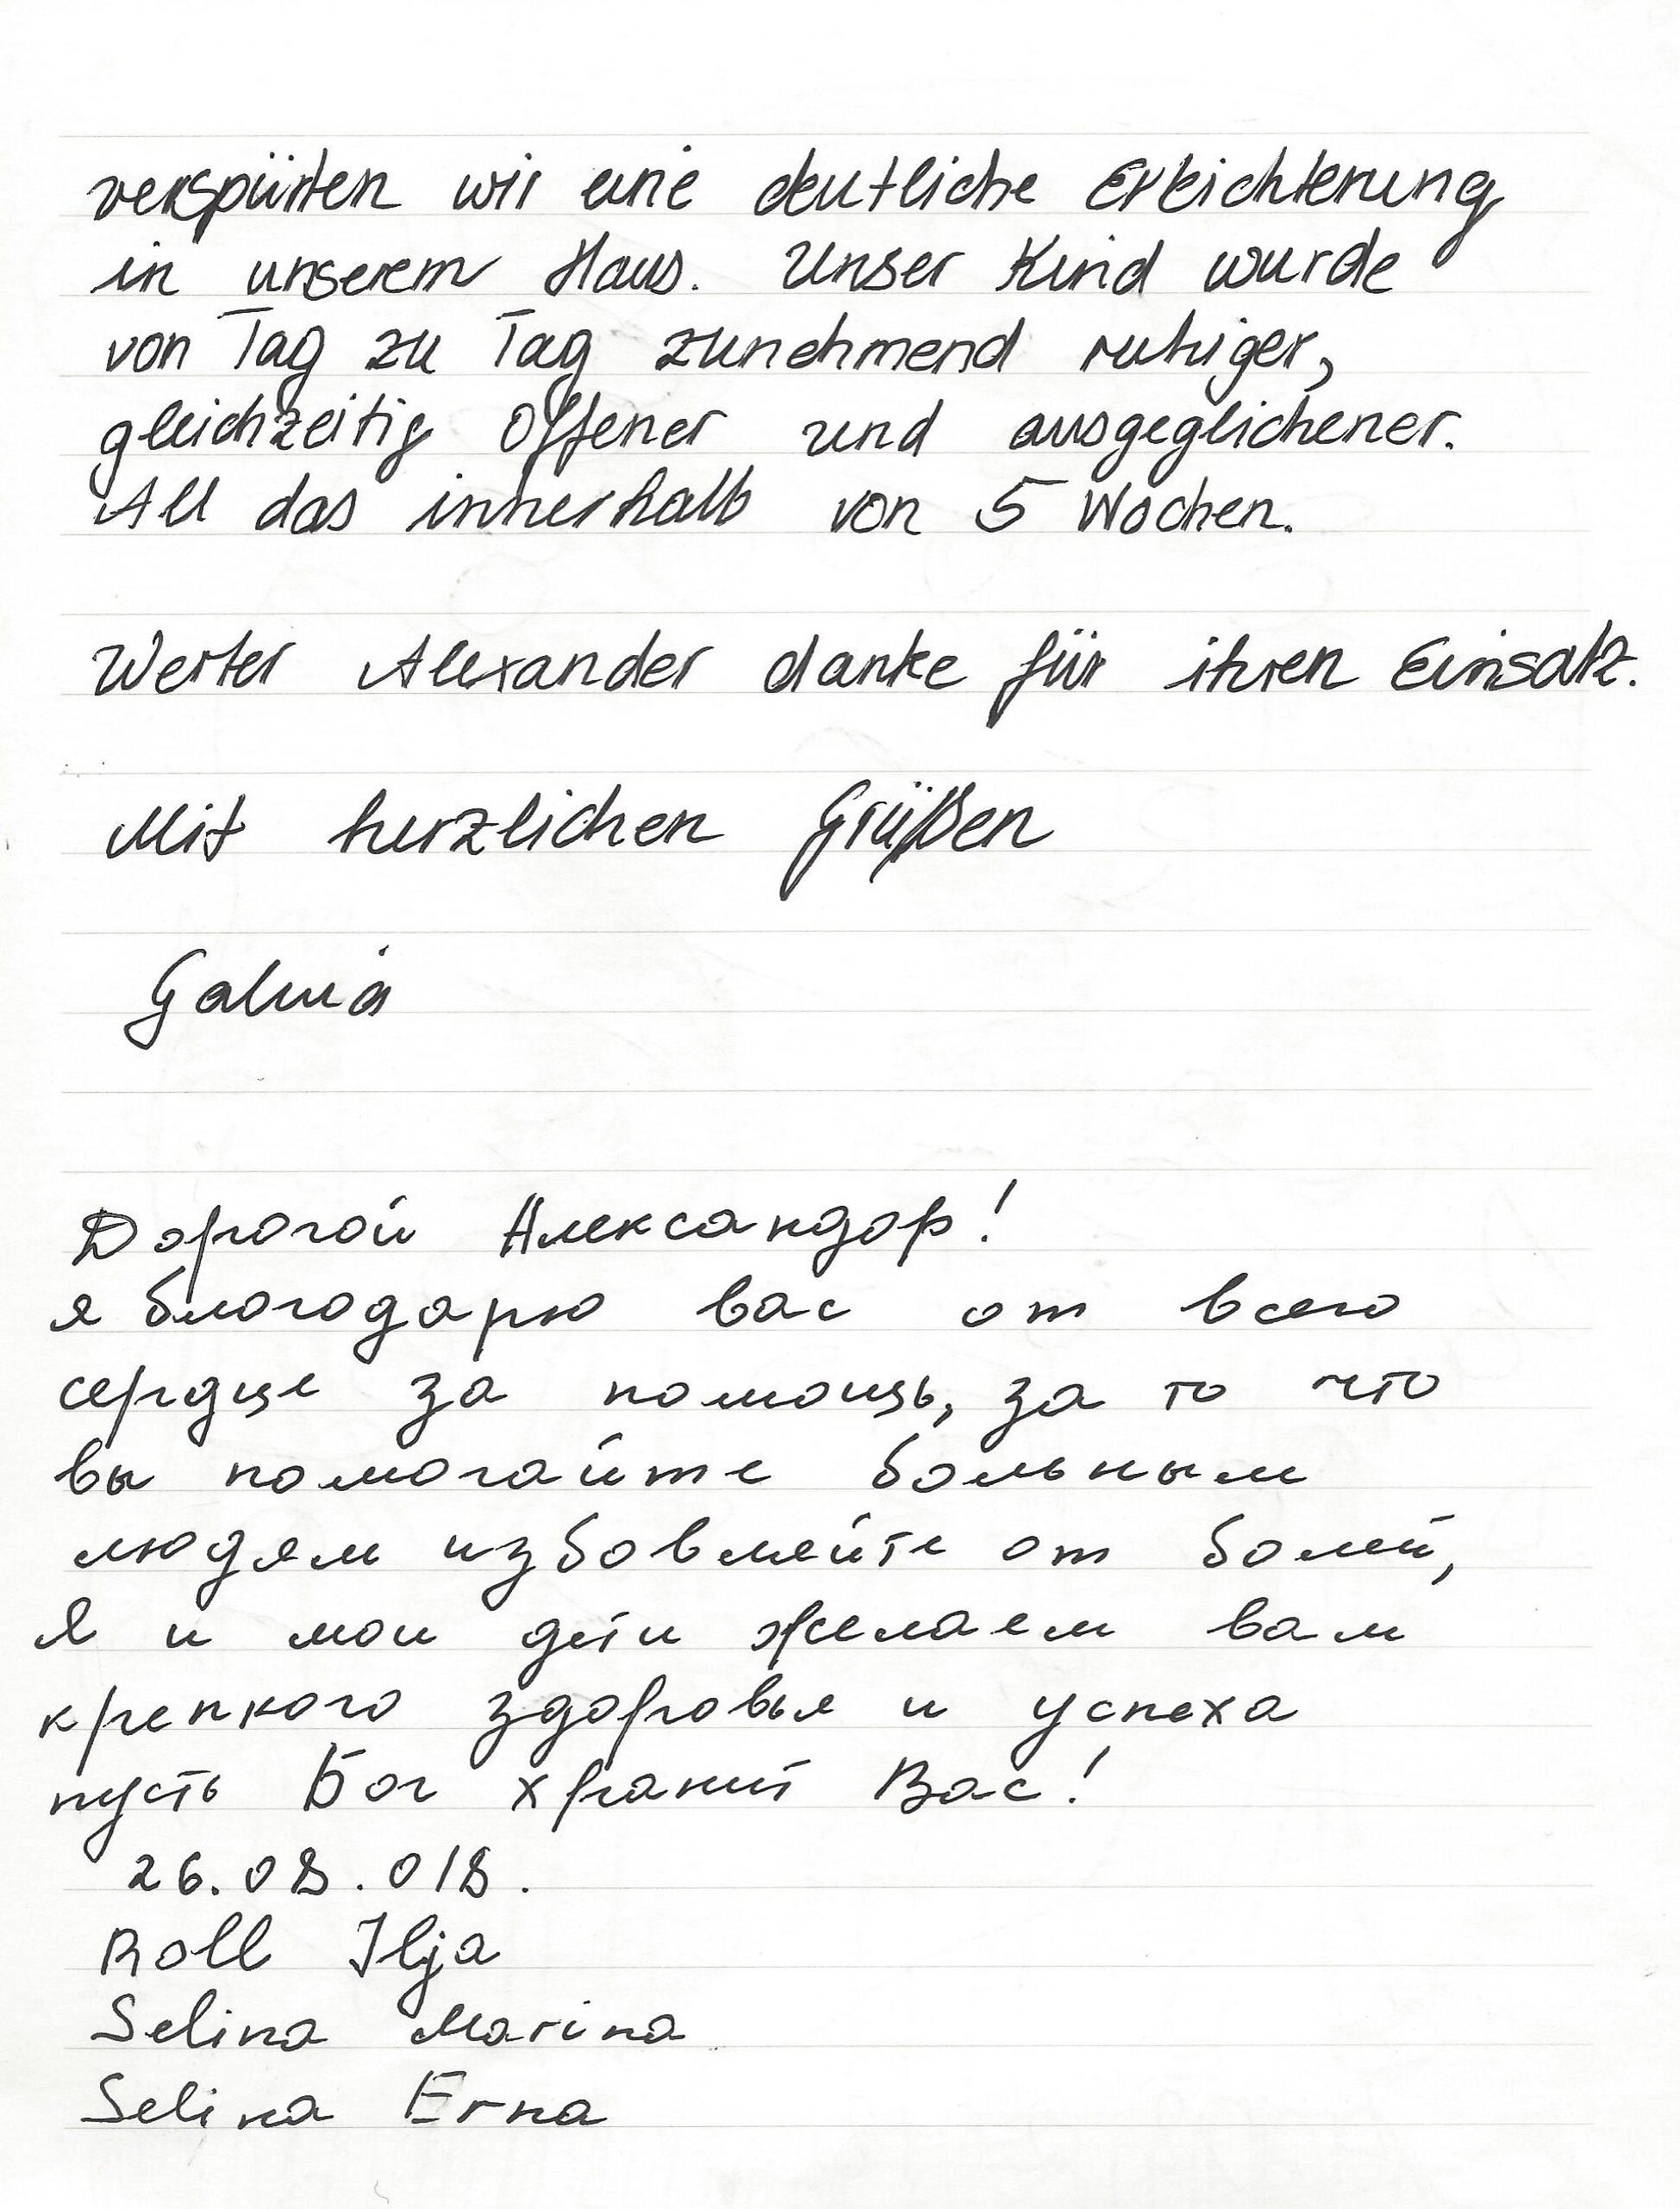 verspürten wir eine deutliche Erleichterung
in unserem Haus. Unser Kind wurde
von Tag zu Tag zunehmend ruhiger,
gleichzeitig offener und ausgeglichener.
All das innerhalb von 5 Wochen.
Werter Alexander danke für ihren Einsatz.
Mit herzlichen Grüßen
Galina
Дорогой Александор!
я благодарю вас от всего
сердце за помощь, за то что
вы помогайте больным
людям избовляйте от болей,
Я и мои дети желаем вам
крепкого здоровья и успеха
пусть Бог хранит Вас!
26.08.018.
Roll Ilja
Selina Marina
Selina Erna